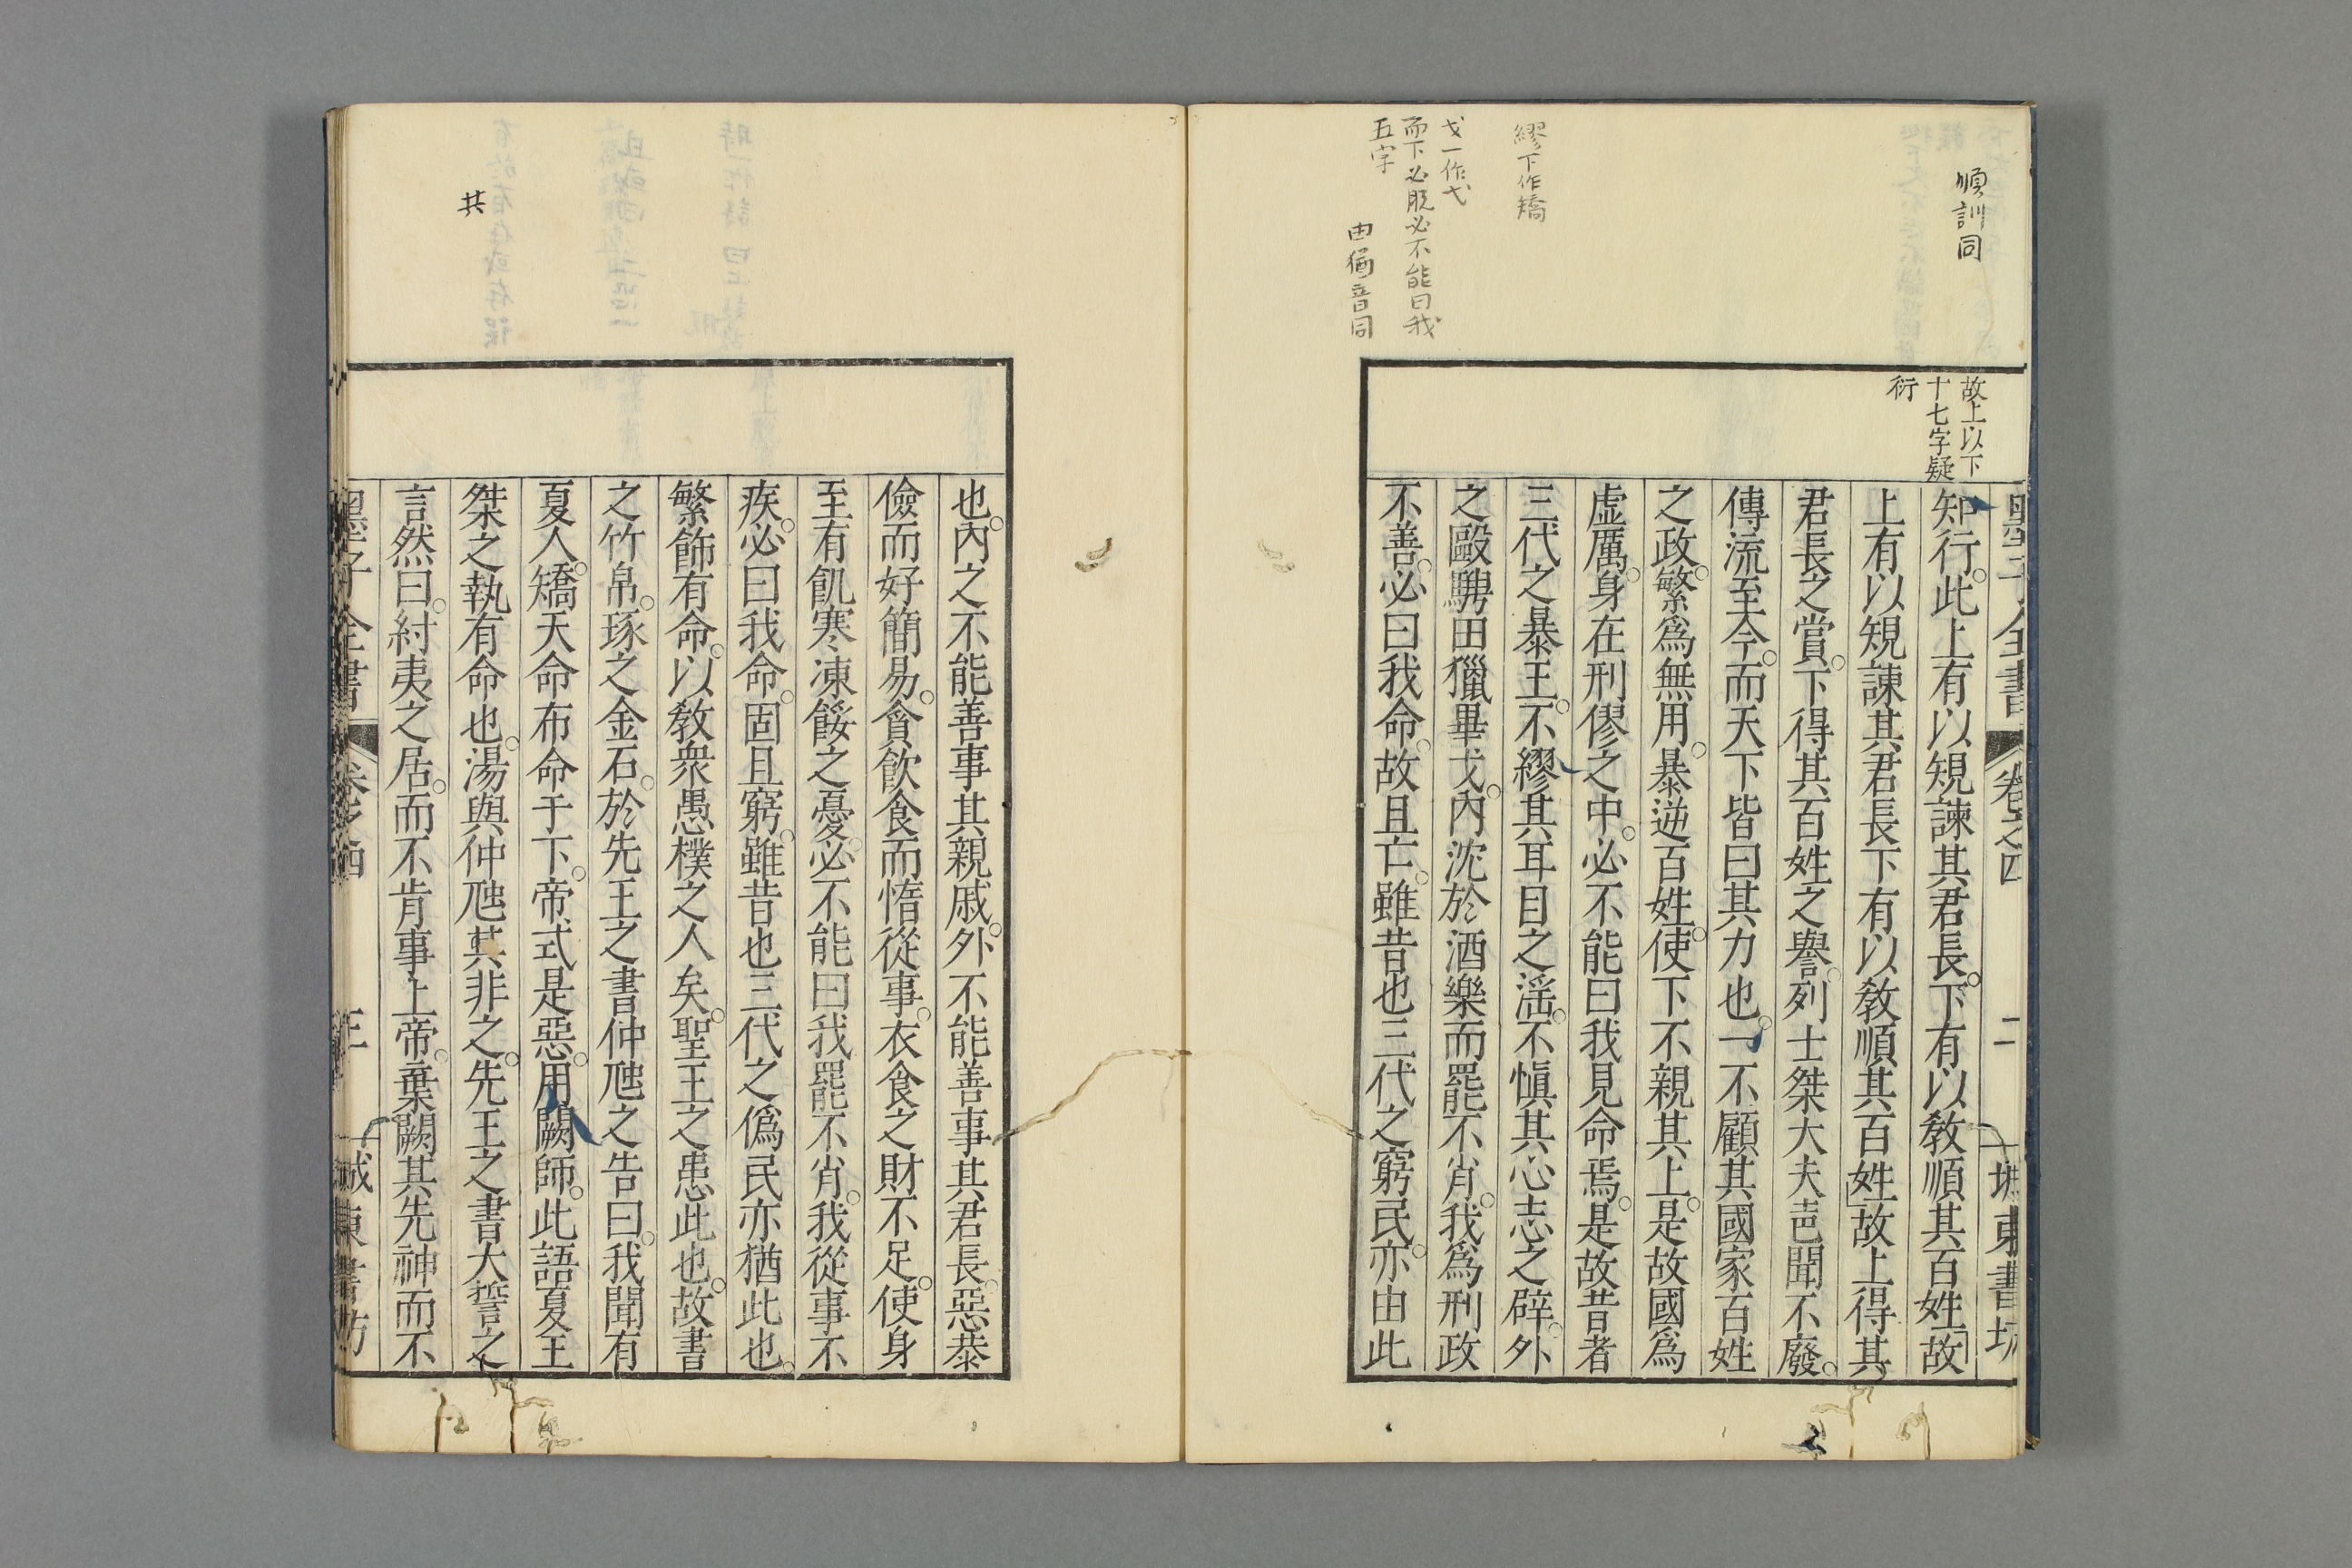 順訓同
繆下作矯
戈一作弋
而下必脫必不能曰我
五字
由猶音同
故上以下
十七字疑
衍
墨子全書 卷之四 二 城東書坊
知行。此上有以規諫其君長。下有以敎順其百姓「故
上有以規諫其君長下有以敎順其百姓」故上得其
君長之賞。下得其百姓之譽。列士桀大夫聲聞不廢。
傳流至今。而天下皆曰其力也。一不顧其國家百姓
之政。繁爲無用。暴逆百姓。使下不親其上。是故國爲
虛厲。身在刑僇之中。必不能曰我見命焉。是故昔者
三代之暴王。不繆其耳目之滛。不愼其心志之辟。外
之毆騁田獵畢戈。內沈於酒樂而罷不肖。我爲刑政
不善。必曰我命。故且亡。雖昔也三代之窮民。亦由此
共
也。內之不能善事其親戚。外不能善事其君長。惡恭
儉而好簡易。貪飮食而惰從事。衣食之財不足。使身
至有飢寒凍餒之憂。必不能曰我罷不肖。我從事不
疾。必曰我命。固且窮。雖昔也三代之僞民亦猶此也。
繁飾有命。以敎衆愚樸之人矣。聖王之患此也。故書
之竹帛。琢之金石。於先王之書仲虺之告曰。我聞有
夏人。矯天命布命于下。帝式是惡。用闕師。此語夏王
桀之執有命也。湯與仲虺其非之。先王之書大誓之
言然曰。紂夷之居。而不肯事上帝。棄闕其先神而不
墨子全書 卷之四 三 城東書坊